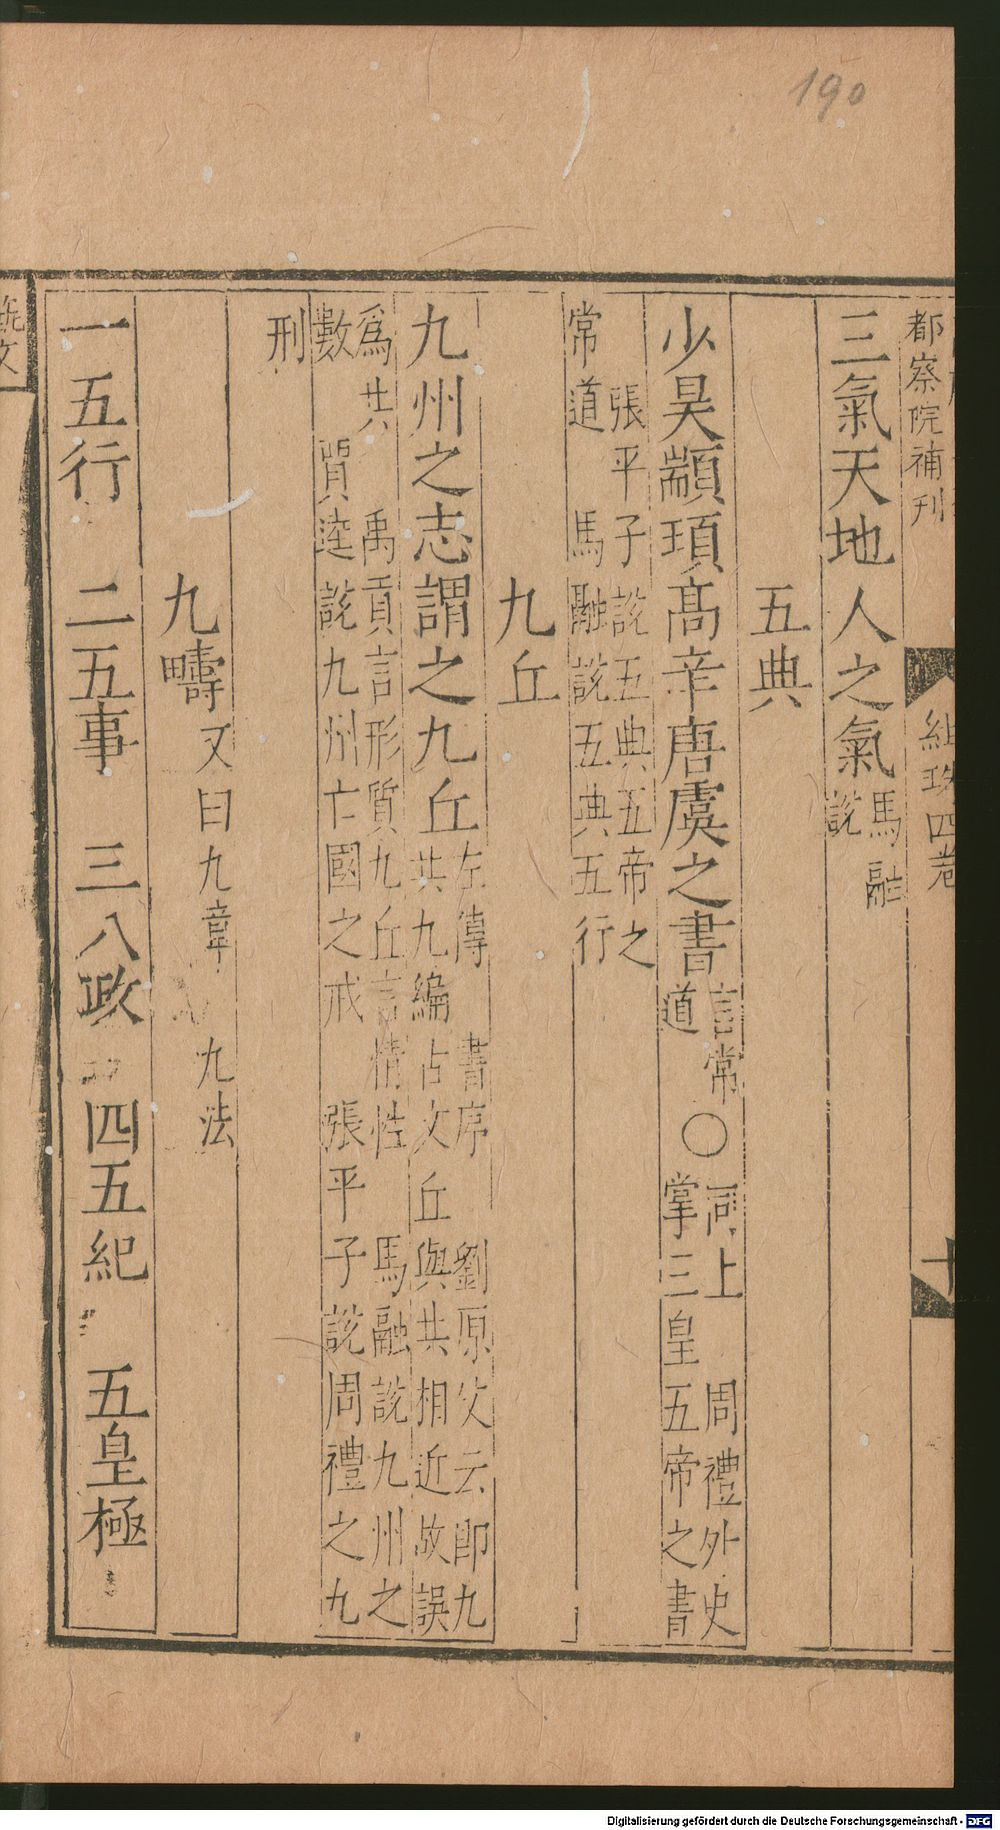 190
都察院補刊
紺珠四卷
十
三氣天地人之氣馬融
說
五典
少昊顓頊髙辛唐虞之書言常
道〇同上 周禮外史
掌三皇五帝之書
張平子說五典五帝之
常道 馬融說五典五行
九丘
九州之志謂之九丘左傳 書序 劉原父云即九
共九編古文丘與共相近故誤
爲共 禹貢言形質九丘言情性 馬融說九州之
數 賈逵說九州亡國之戒 張平子說周禮之九
刑
九疇又曰九章 九法
一五行 二五事 三八政 四五紀 五皇極
Digitalisierung gefördert durch die Deutsche Forschungsgemeinschaft - DFG